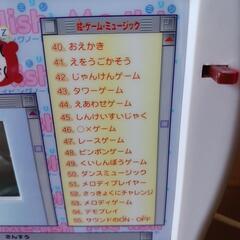 絵・ゲーム・ミュージック
40. おえかき
41. えをうごかそう
42. じゃんけんゲーム
43. タワーゲーム
44. えあわせゲーム
45. しんけいすいじゃく
46. ○×ゲーム
47. レースゲーム
48. ピンポンゲーム
49. くいしんぼうゲーム
50. ダンスミュージック
51. メロディプレイヤー
52. さっきょくにチャレンジ
53. メロディゲーム
54. デモプレイ
55. サウンドのON・OFF
さんすう